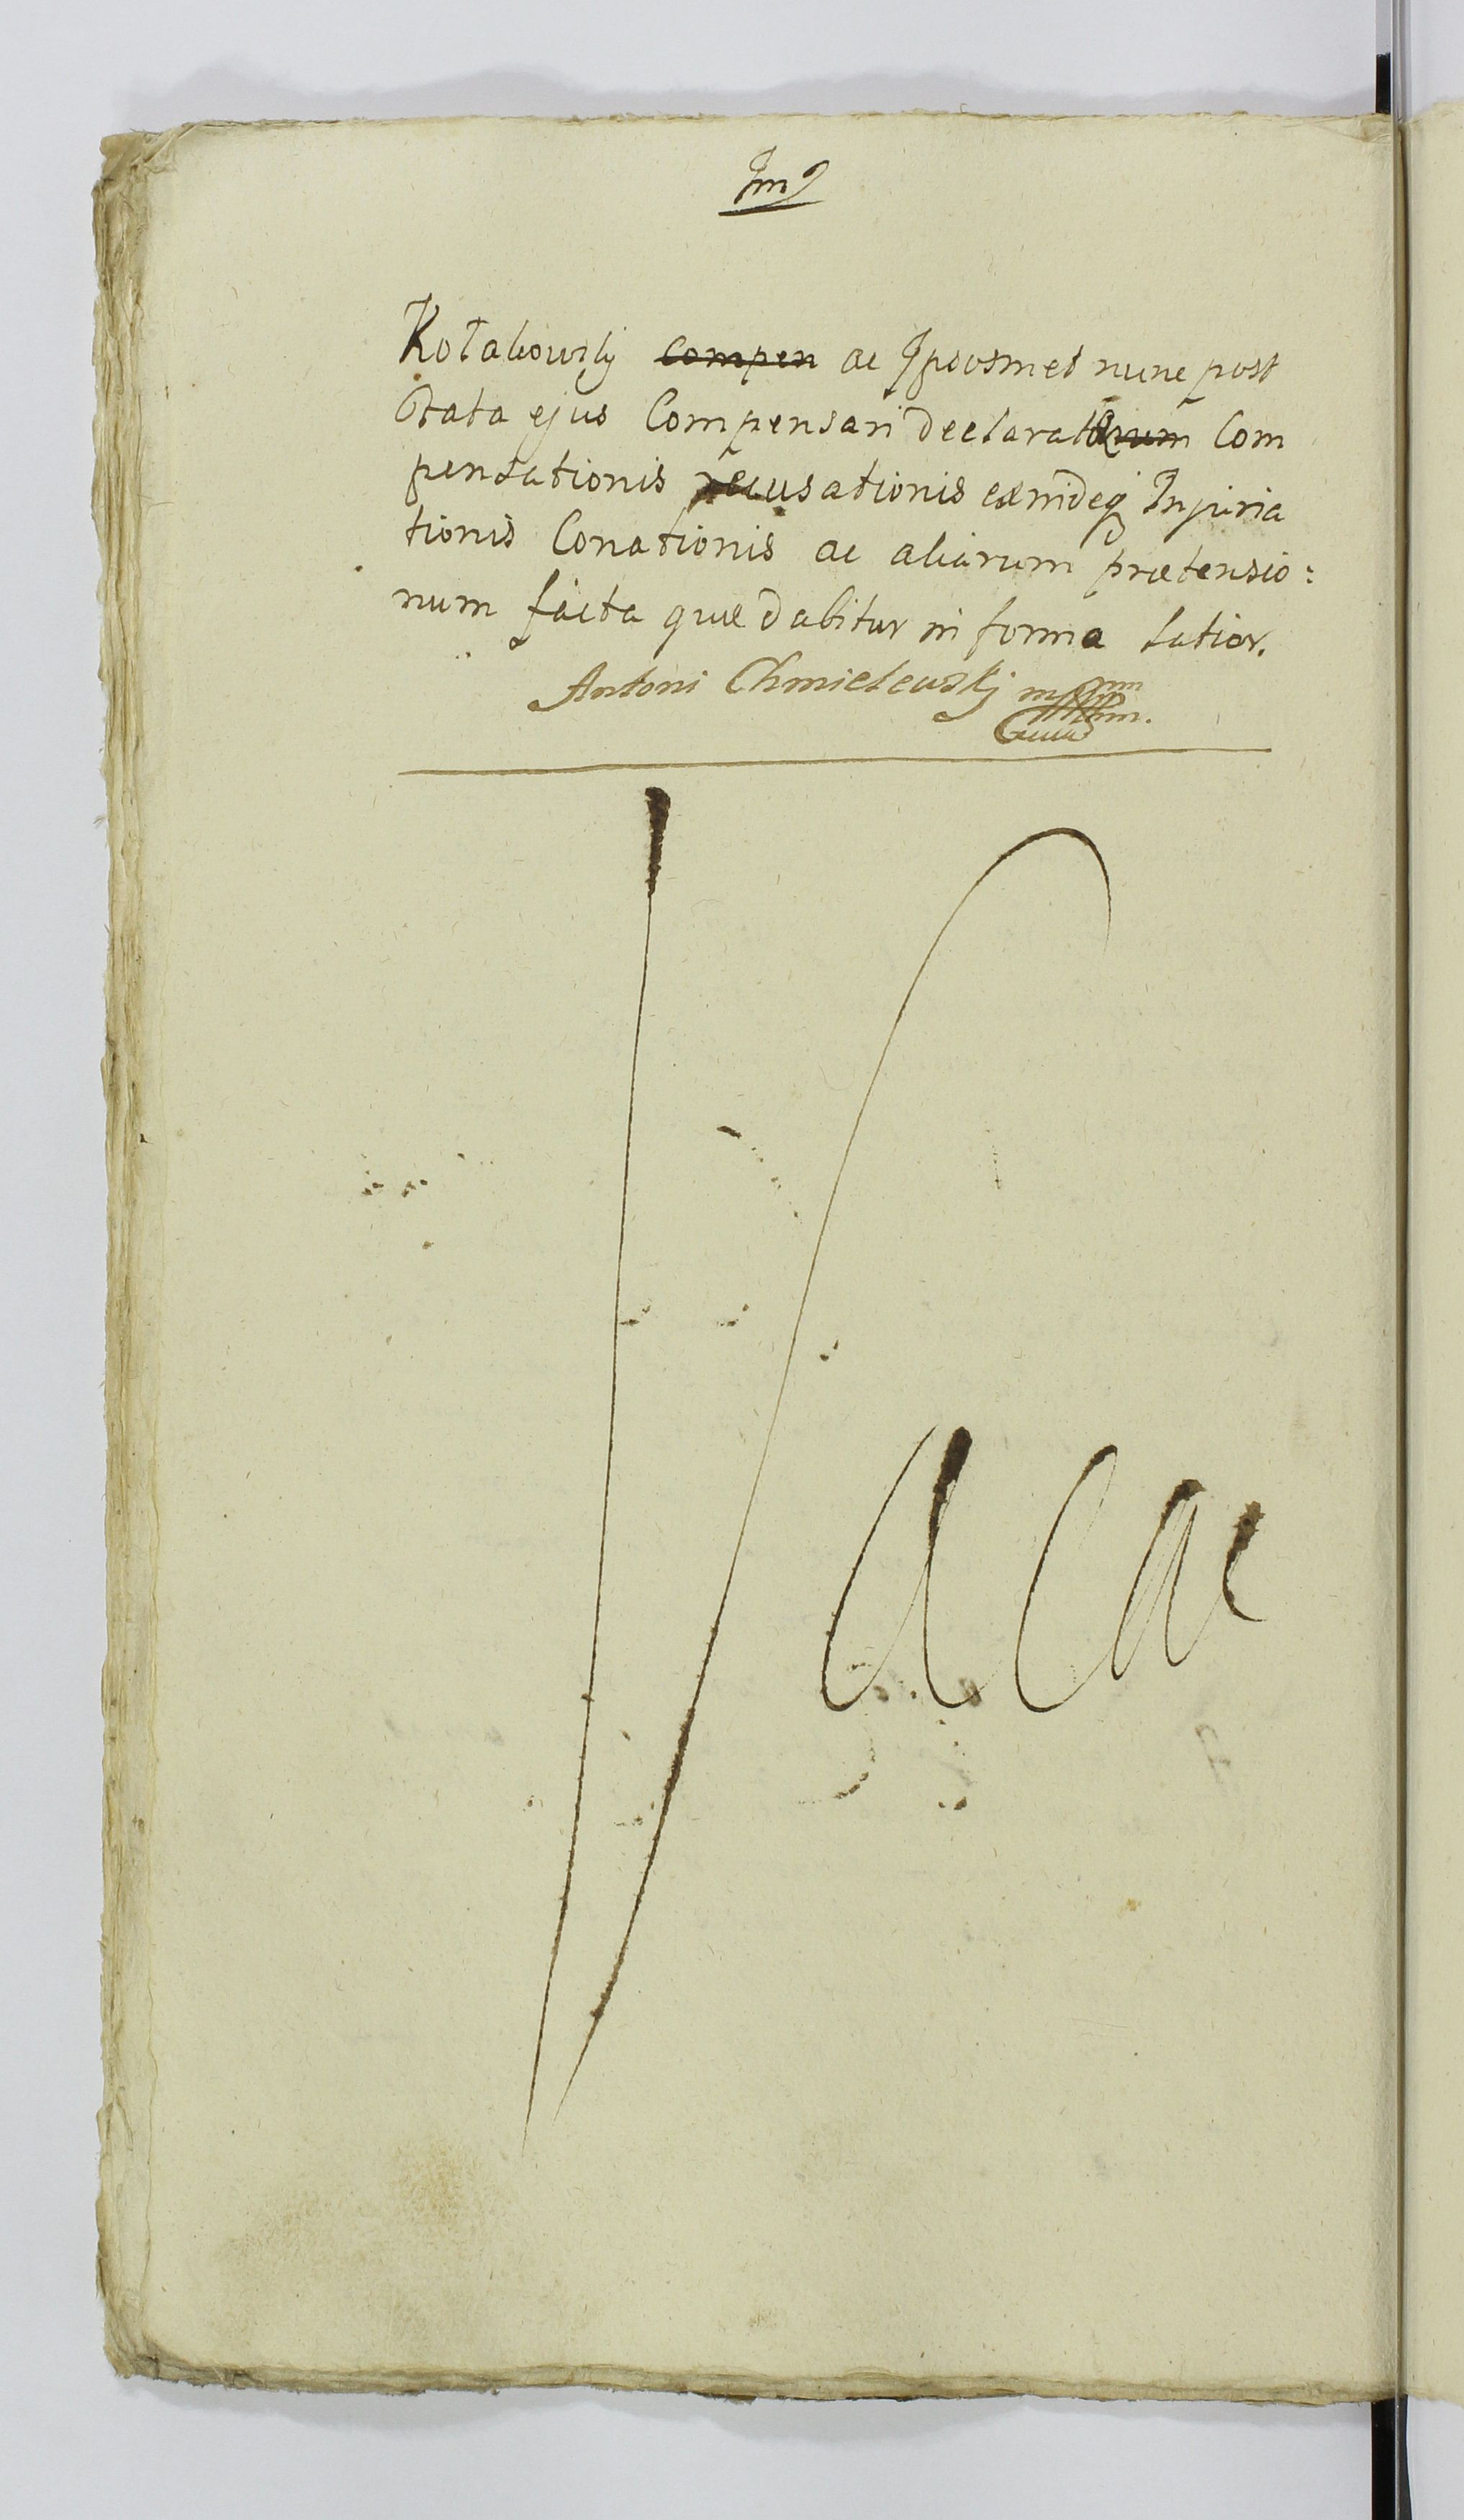 Kotakowskj ~~compen~~ ac Ipsosmet nunc post
Data ejus Compensari declarat Com
pensationis recusationis exindeq Injuria
tionis Conationis ac aliarum prætensio:
num facta quæ dabitur in forma latior.
Antoni Chmielewskj mp
Vacat